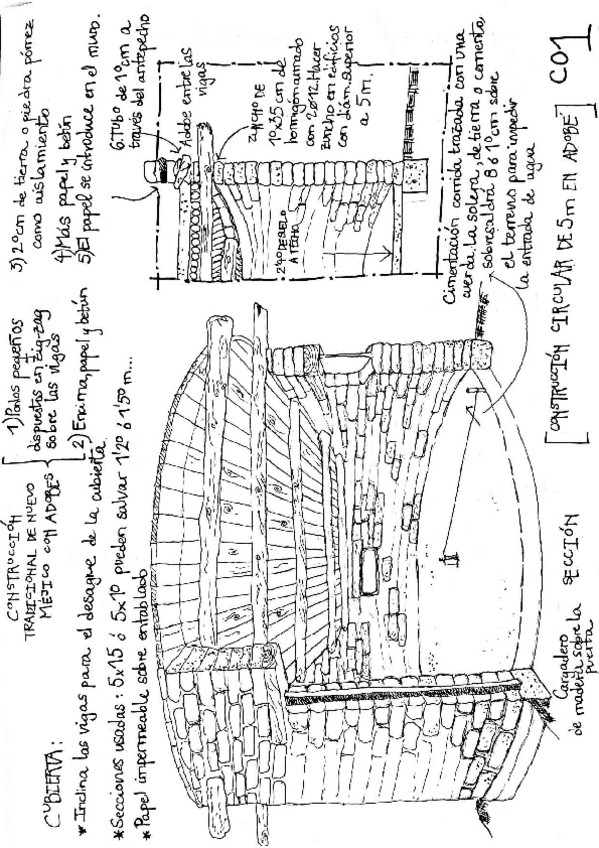 CUBIERTA:
CONSTRUCCIÓN
TRADICIONAL DE NUEVO
MÉJICO CON ADOBES
1) Palos pequeños
dispuestos en zig-zag
sobre las vigas
2) Encima, papel y betún
3) 2º cm de tierra o piedra pómez
como aislamiento
4) Más papel y betún
5) El papel se introduce en el muro.
* Inclina las vigas para el desagüe de la cubierta.
* Secciones usadas: 5x15 ó 5x1º pueden salvar 1'2º ó 1'5º m...
* Papel impermeable sobre entablado
6: TUBO de 1º cm a
través del antepecho
Adobe entre las
vigas
ZUNCHO DE
1º x 35 cm de
hormigón armado
con 2Ø12. Hacer
zuncho en edificios
con diám. superior
a 5 m.
2'4º DE SUELO
A TECHO
Cimentación corrida trazada con una
cuerda, la solera, de tierra o cemento,
sobresaldrá 8 ó 1º cm sobre
el terreno para impedir
la entrada de agua
Cargadero
de madera sobre la
puerta
SECCIÓN
[CONSTRUCCIÓN CIRCULAR DE 5m EN ADOBE] CO1